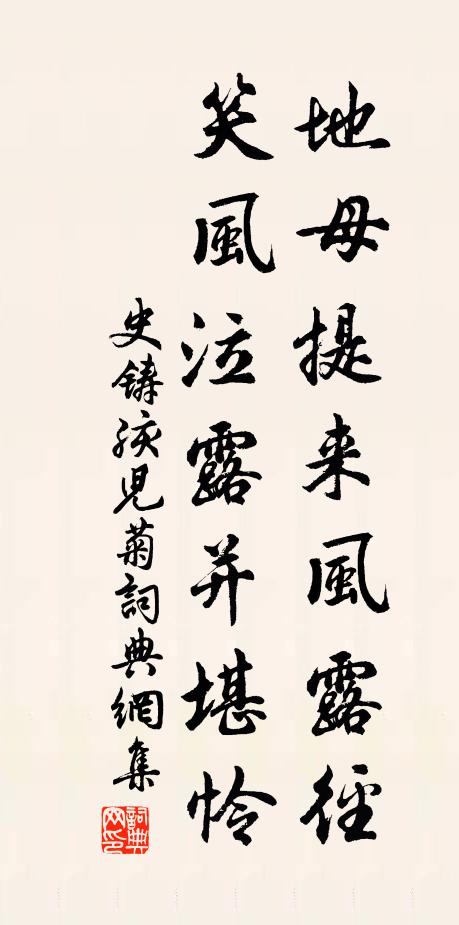 地母提来風露徑
笑風泣露并堪怜
史鑄孩兒菊詞典網集
詞典网印